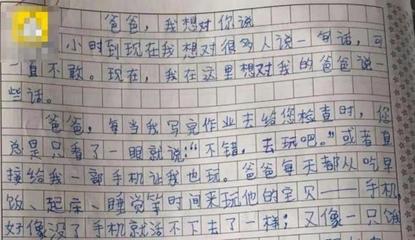 爸爸,我想对你说
小时到现在我想对很多人说一句话,可
直不敢。现在,我在这里想对我的爸爸说一
些话。
爸爸,每当我写完作业去给您检查时,您
总是只看了一眼就说:“不错,去玩吧。”或者直
接给我一部手机让我也玩。爸爸每天都从吃早
饭、起床、睡觉等时间来玩他的宝贝——手机,
好像没了手机就活不下去了一样;又像一只